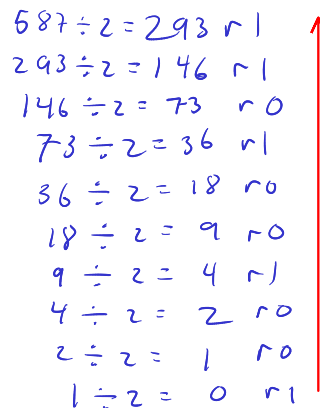 587÷2=293 r1
293÷2=146 r1
146÷2=73 r0
73÷2=36 r1
36÷2=18 r0
18÷2=9 r0
9÷2=4 r1
4÷2=2 r0
2÷2=1 r0
1÷2=0 r1